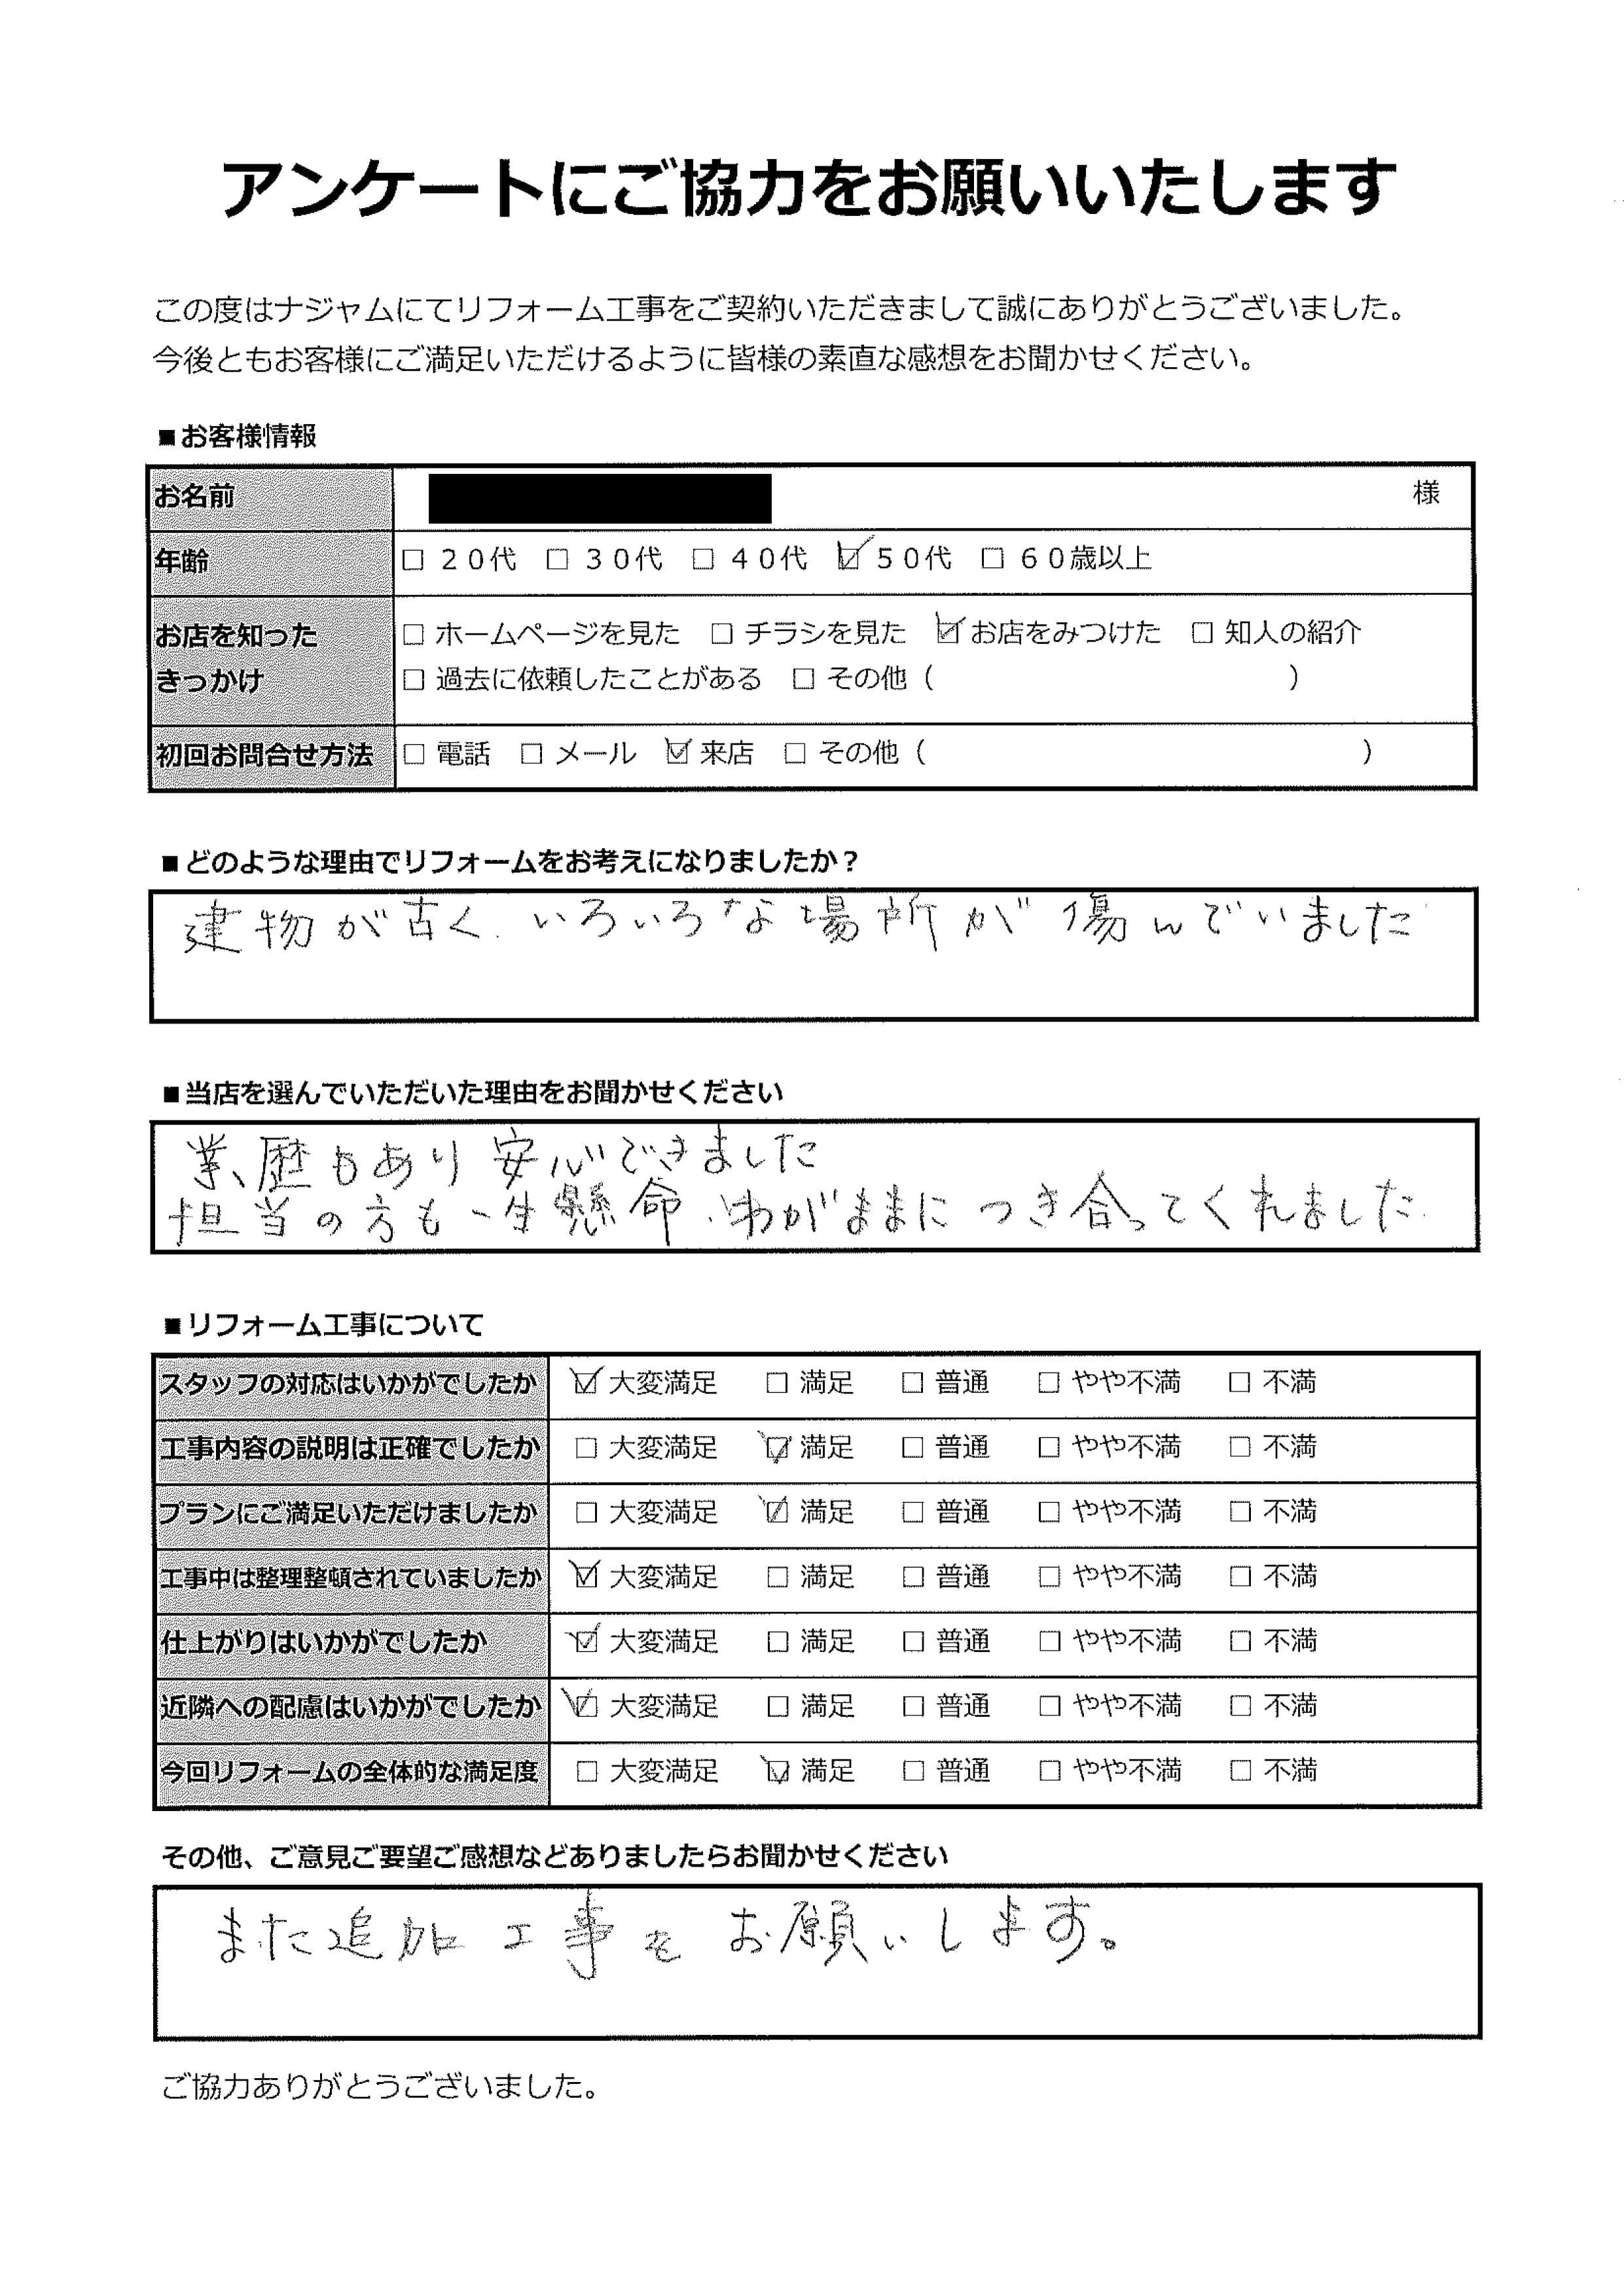 アンケートにご協力をお願いいたします
この度はナジャムにてリフォーム工事をご契約いただきまして誠にありがとうございました。
今後ともお客様にご満足いただけるように皆様の素直な感想をお聞かせください。
■お客様情報
お名前 様
年齢 □ 20代 □ 30代 □ 40代 ☑ 50代 □ 60歳以上
お店を知った □ ホームページを見た □ チラシを見た ☑ お店をみつけた □ 知人の紹介
きっかけ □ 過去に依頼したことがある □ その他( )
初回お問合せ方法 □ 電話 □ メール ☑ 来店 □ その他( )
■どのような理由でリフォームをお考えになりましたか?
建物が古く、いろいろな場所が傷んでいました
■当店を選んでいただいた理由をお聞かせください
業歴もあり安心できました
担当の方も一生懸命、わがままにつき合ってくれました
■リフォーム工事について
スタッフの対応はいかがでしたか ☑ 大変満足 □ 満足 □ 普通 □ やや不満 □ 不満
工事内容の説明は正確でしたか □ 大変満足 ☑ 満足 □ 普通 □ やや不満 □ 不満
プランにご満足いただけましたか □ 大変満足 ☑ 満足 □ 普通 □ やや不満 □ 不満
工事中は整理整頓されていましたか ☑ 大変満足 □ 満足 □ 普通 □ やや不満 □ 不満
仕上がりはいかがでしたか ☑ 大変満足 □ 満足 □ 普通 □ やや不満 □ 不満
近隣への配慮はいかがでしたか ☑ 大変満足 □ 満足 □ 普通 □ やや不満 □ 不満
今回リフォームの全体的な満足度 □ 大変満足 ☑ 満足 □ 普通 □ やや不満 □ 不満
その他、ご意見ご要望ご感想などありましたらお聞かせください
また追加工事をお願いします。
ご協力ありがとうございました。